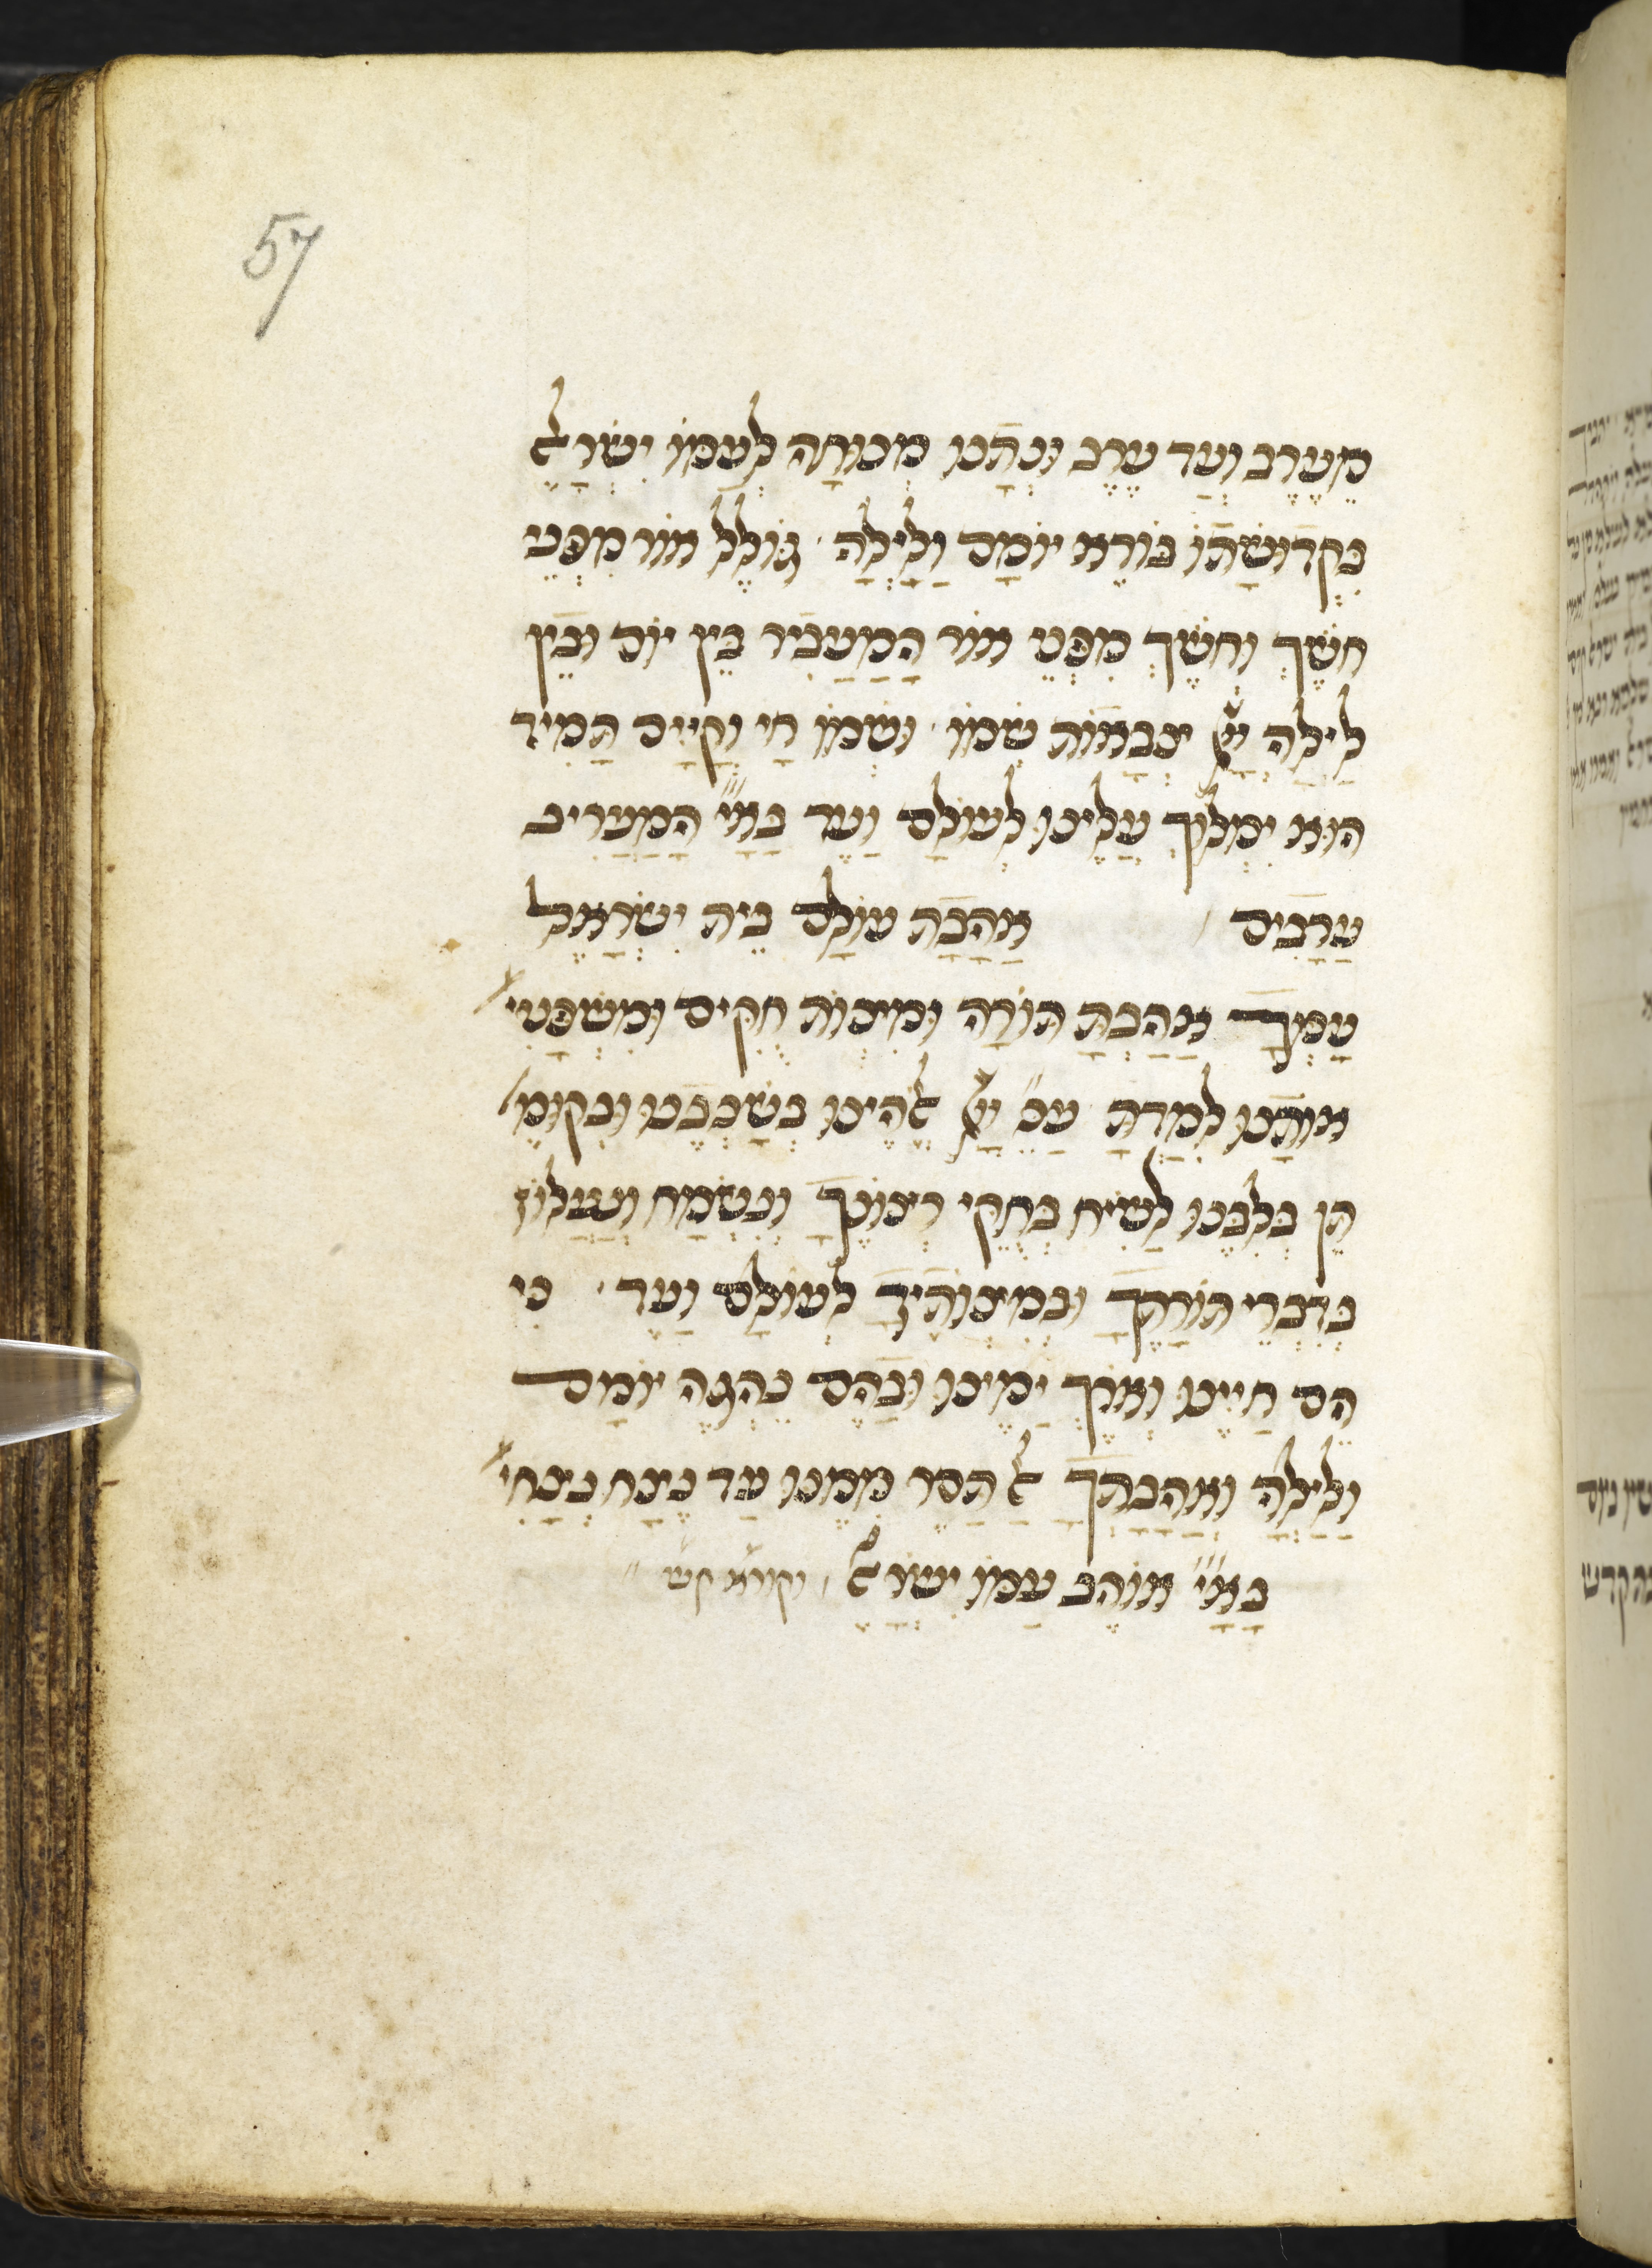 57
מֵעֶרֶב וְעַד עֶרֶב וְנָתַן מְנוּחָה לְעַמּוֹ יִשְׂרָאֵל
בִּקְדֻושָּׁתוֹ בּוֹרֵא יוֹמָם וָלַיְלָה · גּוֹלֵל אוֹר מִפְּנֵי
חֹשֶׁךְ וְחֹשֶׁךְ מִפְּנֵי אוֹר הַמַּעֲבִיר בֵּין יוֹם וּבֵין
לַיְלָה יְיָ צְבָאוֹת שְׁמוֹ · וּשְׁמוֹ חַי וְקַיָּים תָּמִיד
הוּא יִמְלוֹךְ עָלֵינוּ לְעוֹלָם וָעֶד בָּאַ״יְ הַמַּעֲרִיב
עֲרָבִים אַהֲבָת עוֹלָם בֵּית יִשְׂרָאֵל
עַמְּךָ אָהַבְתָּ תּוֹרָה וּמִצְוֹת חֻקִּים וּמִשְׁפָּטִי׳
אוֹתָנוּ לִמַּדְתָּ עַכֵּ״ יְיָ אֱלֹהֵינוּ בְּשָׁכְבֵנוּ וּבְקוּמֵ׳
הֵן בְּלִבֵּנוּ לָשִׂיחַ בְּחֻקֵּי רְצוֹנֶךָ וְנִשְׂמַח וְנַעֲלוֹז
בְּדִבְרֵי תוֹרָתֶךָ וּבְמִצְוֹתֶיךָ לְעוֹלָם וָעֶד · כִּי
הֵם חַיֵּינוּ וְאוֹרֶךְ יָמֵינוּ וּבָהֶם נֶהְגֶּה יוֹמָם
וָלַיְלָה וְאַהֲבָתְךָ אַל תָּסֵר מִמֶּנּוּ עַד נֶצַח נְצָחִי׳
בָּאַ״יְ אוֹהֵב עַמּוֹ יִשְׂרָאֵל · וקורא קש״